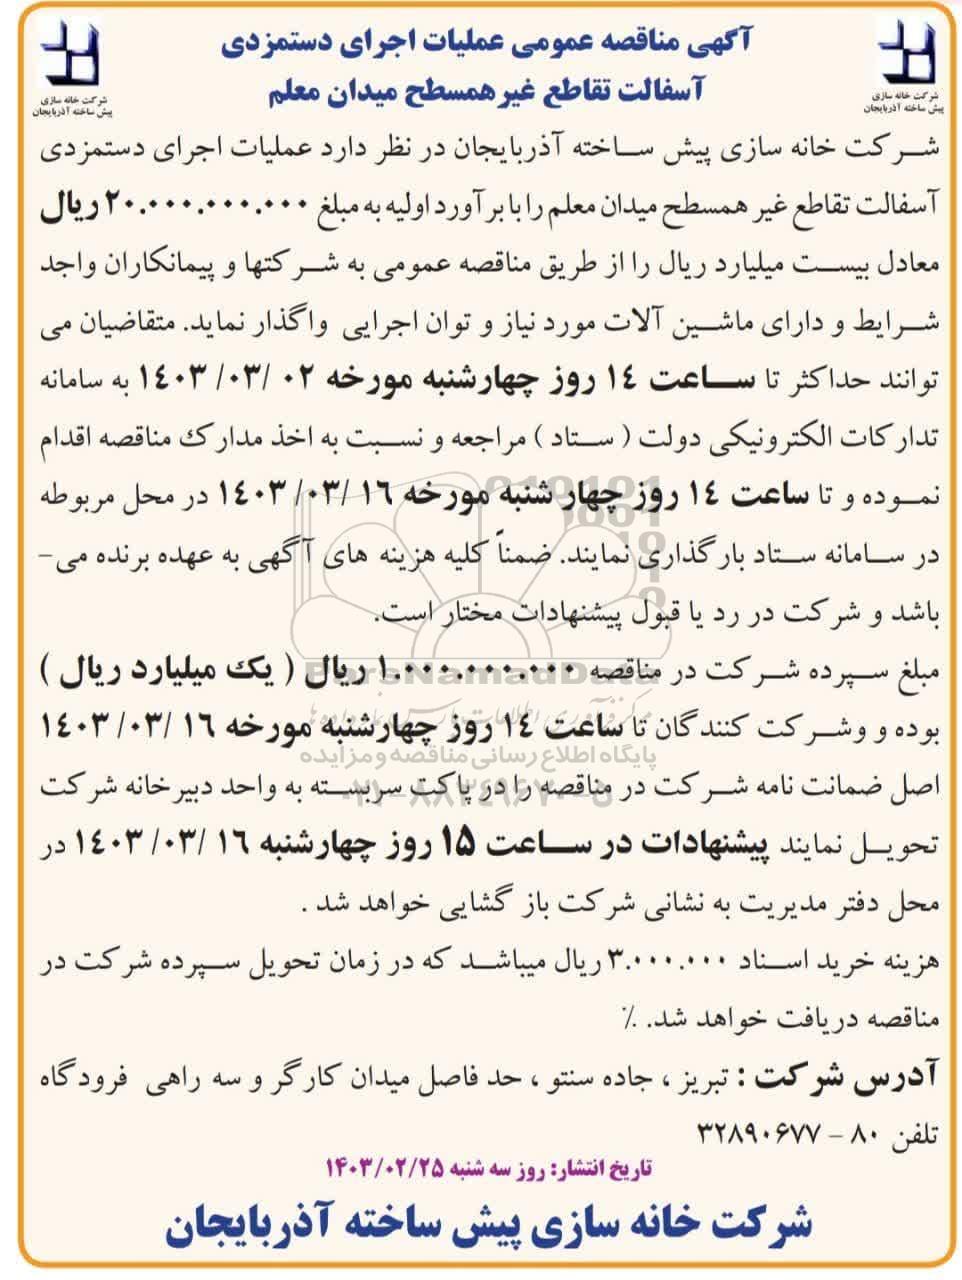 آگهی مناقصه عمومی عملیات اجرای دستمزدی
آسفالت تقاطع غیرهمسطح میدان معلم
شرکت خانه سازی
پیش ساخته آذربایجان
شرکت خانه سازی
پیش ساخته آذربایجان
شرکت خانه سازی پیش ساخته آذربایجان در نظر دارد عملیات اجرای دستمزدی
آسفالت تقاطع غیر همسطح میدان معلم را با برآورد اولیه به مبلغ ۲۰.۰۰۰.۰۰۰.۰۰۰ ریال
معادل بیست میلیارد ریال را از طریق مناقصه عمومی به شرکتها و پیمانکاران واجد
شرایط و دارای ماشین آلات مورد نیاز و توان اجرایی واگذار نماید. متقاضیان می
توانند حداکثر تا ساعت ۱۴ روز چهارشنبه مورخه ۰۲ /۰۳/ ۱۴۰۳ به سامانه
تدارکات الکترونیکی دولت ( ستاد ) مراجعه و نسبت به اخذ مدارک مناقصه اقدام
نموده و تا ساعت ۱۴ روز چهار شنبه مورخه ۱۶ /۰۳/ ۱۴۰۳ در محل مربوطه
در سامانه ستاد بارگذاری نمایند. ضمناً کلیه هزینه های آگهی به عهده برنده می-
باشد و شرکت در رد یا قبول پیشنهادات مختار است.
مبلغ سپرده شرکت در مناقصه ۱.۰۰۰.۰۰۰.۰۰۰ ریال ( یک میلیارد ریال )
بوده و وشرکت کنندگان تا ساعت ۱۴ روز چهارشنبه مورخه ۱۶ /۰۳/ ۱۴۰۳
اصل ضمانت نامه شرکت در مناقصه را در پاکت سربسته به واحد دبیرخانه شرکت
تحویل نمایند پیشنهادات در ساعت ۱۵ روز چهارشنبه ۱۶ /۰۳/ ۱۴۰۳ در
محل دفتر مدیریت به نشانی شرکت باز گشایی خواهد شد .
هزینه خرید اسناد ۳.۰۰۰.۰۰۰ ریال میباشد که در زمان تحویل سپرده شرکت در
مناقصه دریافت خواهد شد. ٪
آدرس شرکت : تبریز ، جاده سنتو ، حد فاصل میدان کارگر و سه راهی فرودگاه
تلفن ۸۰ - ۳۲۸۹۰۶۷۷
تاریخ انتشار: روز سه شنبه ۱۴۰۳/۰۲/۲۵
شرکت خانه سازی پیش ساخته آذربایجان
ParsNamadData
پایگاه اطلاع رسانی مناقصه و مزایده
۰۲۱-۸۸۳۴۹۶۷۰-۵